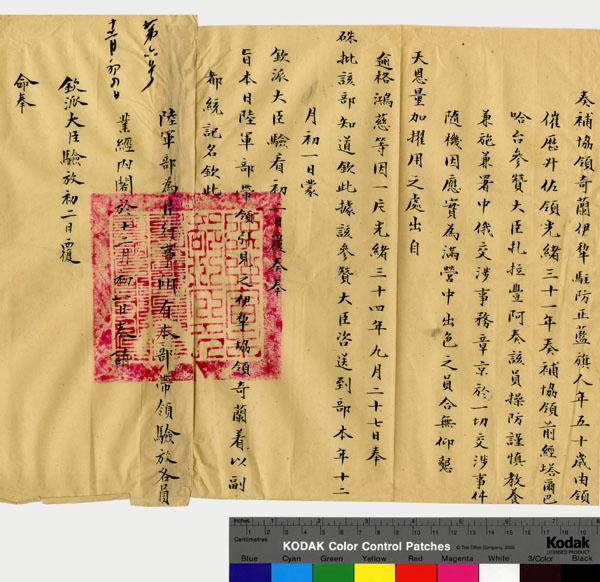 奏補協領奇蘭伊犂駐防正藍旗人年五十歲由領
催歷升佐領光緒三十一年奏補協領前經塔爾巴
哈台參贊大臣札拉豐阿奏該員操防謹慎教養
兼施兼署中俄交涉事務章京於一切交涉事件
隨機因應實為滿營中出色之員合無仰懇
天恩量加擢用之處出自
逾格鴻慈等因一片光緒三十四年九月二十七日奉
硃批該部知道欽此據該參贊大臣咨送到部本年十二
月初一日蒙
欽派大臣驗看初一日覆奏奉
旨本日陸軍部帶領引見之伊犂協領奇蘭着以副
都統記名欽此
陸軍部為片行事所有本部帶領驗放各員
第六号
十二月初四日
業經內閣於十二月初一日奏請
欽派大臣驗放初二日覆
命奉
Inches 1 2 3 4 5 6 7 8
Centimetres
KODAK Color Control Patches
© The Tiffen Company, 2000
Kodak
LICENSED PRODUCT
Blue Cyan Green Yellow Red Magenta White 3/Color Black